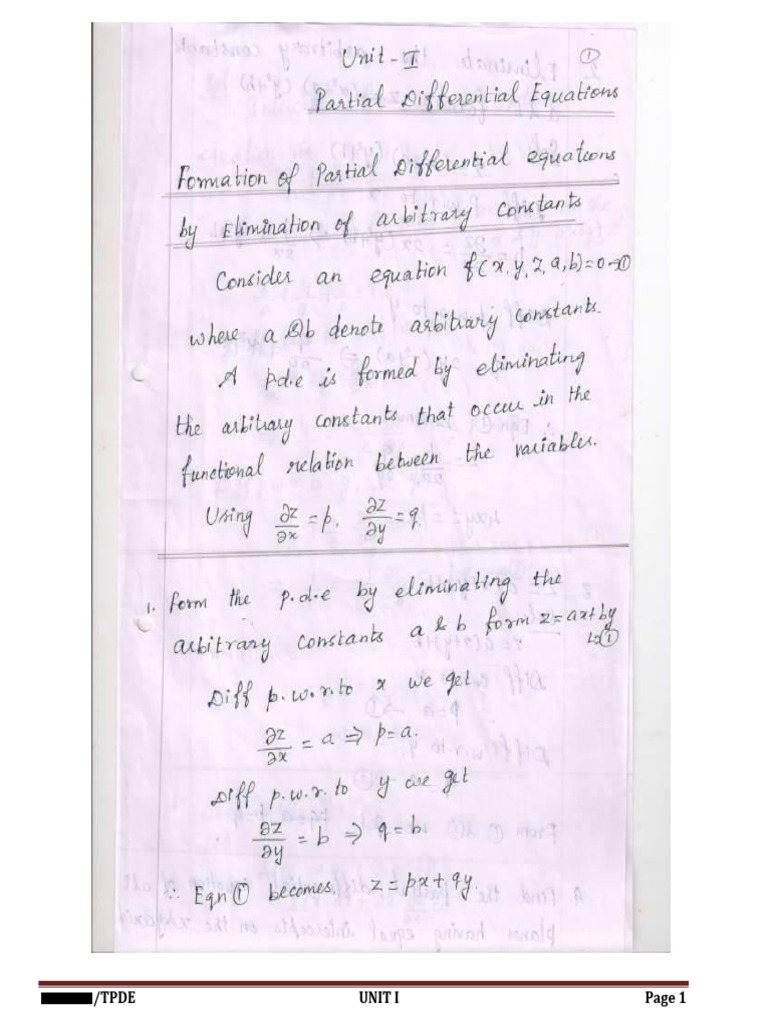 Unit - I
①
Partial Differential Equations
Formation of Partial Differential equations
by Elimination of arbitrary constants
Consider an equation f(x, y, z, a, b) = 0 → ①
where a & b denote arbitrary constants.
A p.d.e is formed by eliminating
the arbitrary constants that occur in the
functional relation between the variables.
Using ∂z/∂x = p, ∂z/∂y = q.
1. Form the p.d.e by eliminating the
arbitrary constants a & b form z = ax + by
↳ ①
Diff p.w.r.to x we get
∂z/∂x = a ⇒ p = a.
Diff p.w.r. to y we get
∂z/∂y = b ⇒ q = b.
∴ Eqn ① becomes, z = px + qy.
/TPDE UNIT I Page 1